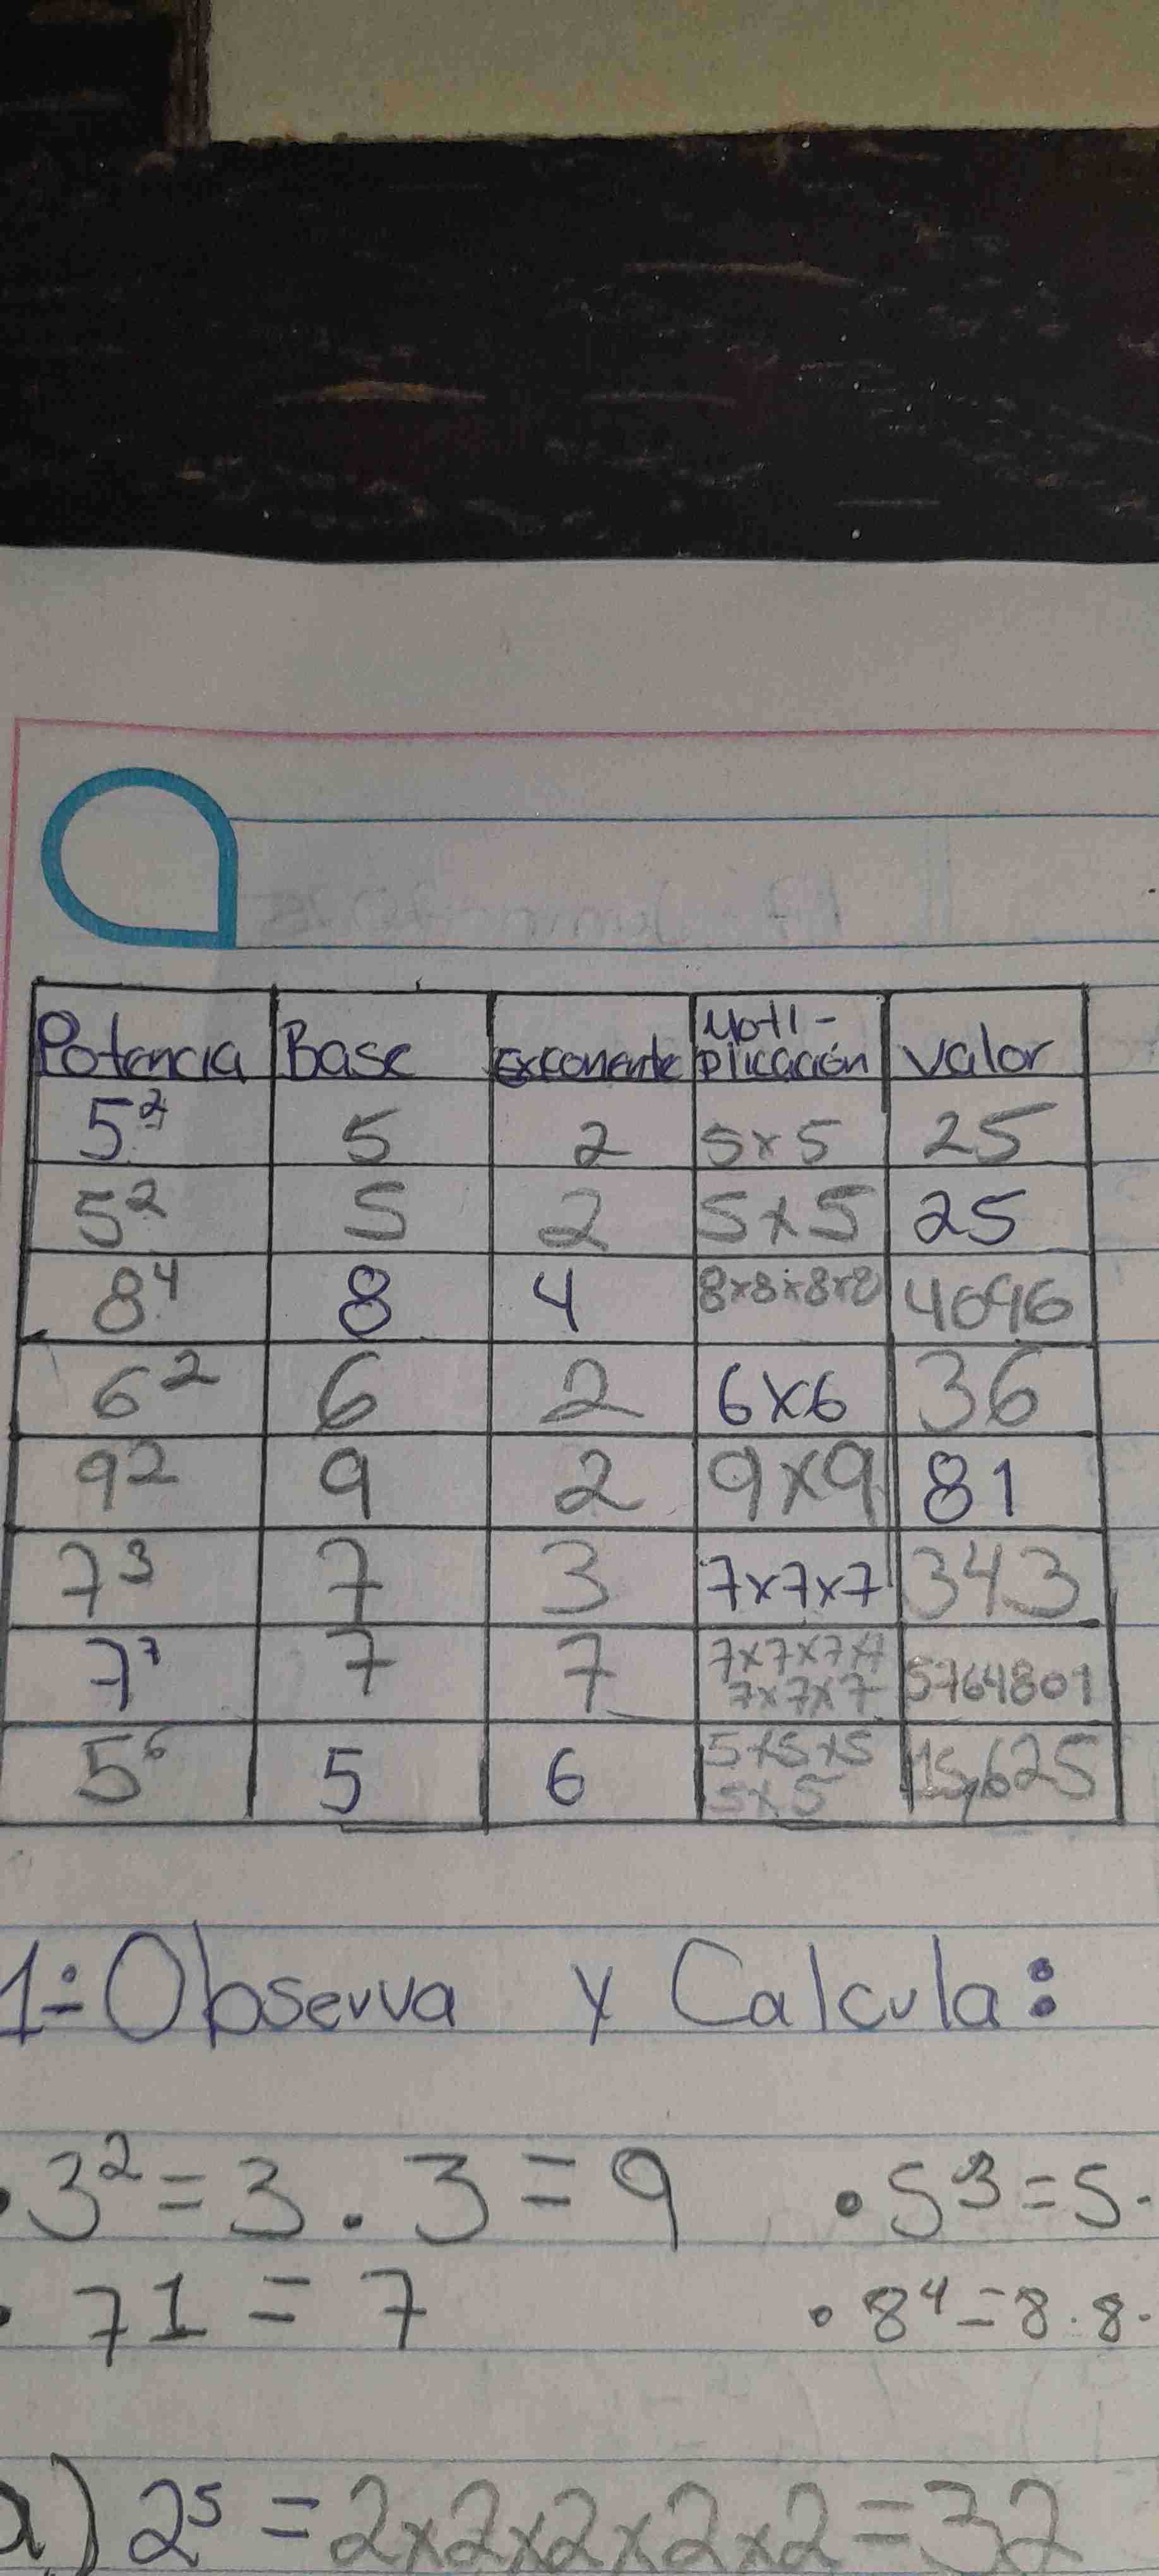 Potencia Base exponente Multi-plicación valor
5² 5 2 5x5 25
5² 5 2 5x5 25
8⁴ 8 4 8x8x8x8 4096
6² 6 2 6x6 36
9² 9 2 9x9 81
7³ 7 3 7x7x7 343
7⁷ 7 7 7x7x7x7 7x7x7 5764801
5⁶ 5 6 5x5x5 5x5 15,625
1÷Observa y Calcula:
•3²=3.3=9 •5³=5.
•71=7 •8⁴=8.8.
a) 2⁵=2x2x2x2x2=32